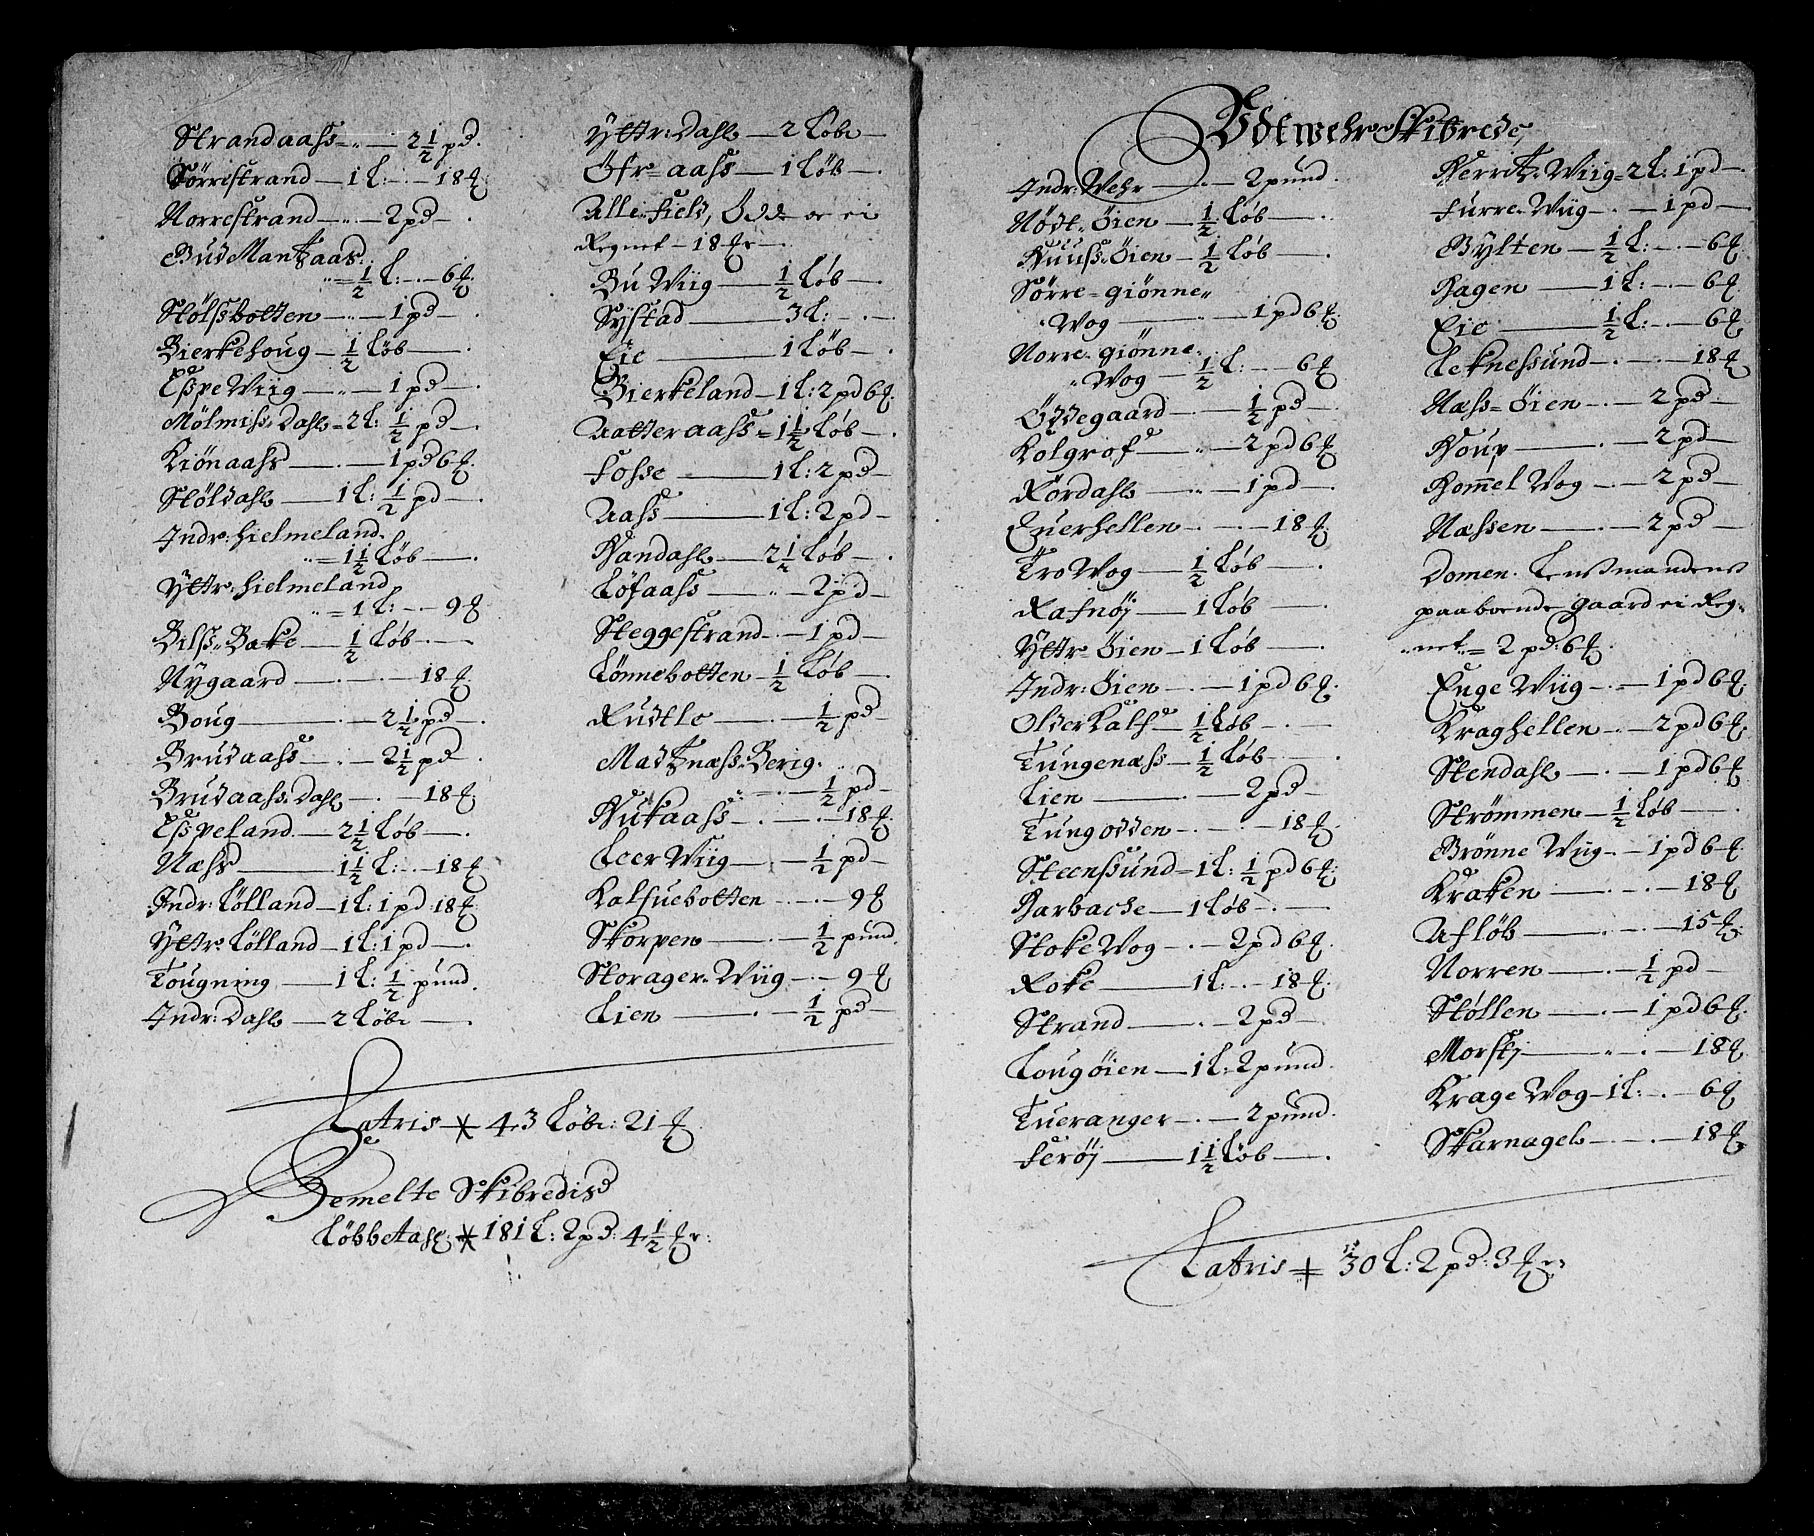 Strandaass — 2 1/2 pd.
Sörrestrand — 1 L: — 18 ℔
Norrestrand — 2 pd —
BudMantzaas:
= 1/2 L: — 6 ℔
Stölssbotten — 1 pd —
Bierkehoug — 1/2 Löb —
Esspe Wiig — 1 pd —
Mölmiss Dahl = 2 L: 1/2 pd —
Kiönaass — 1 pd 6 ℔
Stöldahl — 1 L: 1/2 pd —
Indr: hielmeland.
= 1 1/2 Löb —
Yttr: hielmeland
= 1 L: — 9 ℔
Bilss Bake — 1/2 Löb —
Nygaard — 18 ℔
Boug — 2 1/2 pd —
Brudaass — 2 1/2 pd
Brudaass Dahl — 18 ℔
Esspeland — 2 1/2 Löb —
Næss — 1 1/2 L: — 18 ℔
Indr: Lölland — 1 L: 1 pd 18 ℔
Yttr: Lölland — 1 L: 1 pd —
Tougning — 1 L: 1/2 pund.
Indr: Dahl — 2 Löbe —
Yttr: Dahl — 2 Löbe —
Öfr= aass — 1 Löb —
Alle field, Ödde oc ei
Regnet — 18 ℔r —
Bu Wiig — 1/2 Löb —
Systad — 3 L: —
Eie — 1 Löb —
Bierkeland — 1 L: 2 pd 6 ℔
Aatteraass = 1 1/2 Löb —
Fosse — 1 L: 2 pd —
Aass — 1 L: 2 pd —
Handahl — 2 1/2 Löb —
Löfaass — 2 pd —
Steggestrand — 1 pd —
Lönnebotten — 1/2 Löb —
Rudtle — 1/2 pd —
Madtznæss Berig.
— 1/2 pd —
Hukaass — 18 ℔
Leer Wiig — 1/2 pd —
Kalfuebotten — 9 ℔
Skorpen — 1/2 pund.
Storager Wiig — 9 ℔
Lien — 1/2 pd —
Latris 43 Löbe: 21 ℔
Bemelte Skibredis
Löbbetahl 181 L: 2 pd: 4 1/2 ℔r:
Udtwehr Skibrede,
Indr: Wehr — 2 pund.
Nödt Öien — 1/2 Löb —
Huuss Öien — 1/2 Löb —
Sörre = giönne
Wog — 1 pd 6 ℔
Norre giönne
Wog — 1/2 L: — 6 ℔
Öddegaard — 1/2 pd —
Kolgrof — 2 pd 6 ℔
Rördahl — 1 pd —
Euerhellen — 18 ℔
Tro Wog — 1/2 Löb —
Rafnöj — 1 Löb —
Yttr= Öien — 1 Löb —
Indr: Öien — 1 pd 6 ℔
Older Kalf — 1/2 Löb —
Tungenæss — 1/2 Löb —
Lien — 2 pd —
Tungodden — 18 ℔
Steenssund — 1 L: 1/2 pd 6 ℔
Harbache — 1 Löb —
Stoke Wog — 2 pd 6 ℔
Roke — 1 L: — 18 ℔
Strand — 2 pd —
Lougöien — 1 L: 2 pund.
Tueranger — 2 pund.
Feröj — 1 1/2 Löb —
Herritz Wiig = 2 L: 1 pd —
Furre Wiig — 1 pd —
Bylten — 1/2 L: — 6 ℔
Hagen — 1 L: — 6 ℔
Eie — 1/2 L: — 6 ℔
Leknessund — 18 ℔
Næss = Öien — 2 pd —
Houp — 2 pd —
Hommel Wog — 2 pd —
Næssen — 2 pd —
Domen. Lensmandens
paaboende gaard ei Reg
net = 2 pd: 6 ℔
Enge Wiig — 1 pd 6 ℔
Kraghellen — 2 pd 6 ℔
Stendahl — 1 pd 6 ℔
Strömmen — 1/2 Löb —
Brönne Wiig — 1 pd 6 ℔
Kraken — 18 ℔
Aflöb — 15 ℔
Norren — 1/2 pd —
Stöllen — 1 pd 6 ℔
Morskj — 18 ℔
Krage Wog — 1 L: — 6 ℔
Skarnagel — 18 ℔
Latris 30 L: 2 pd: 3 ℔r